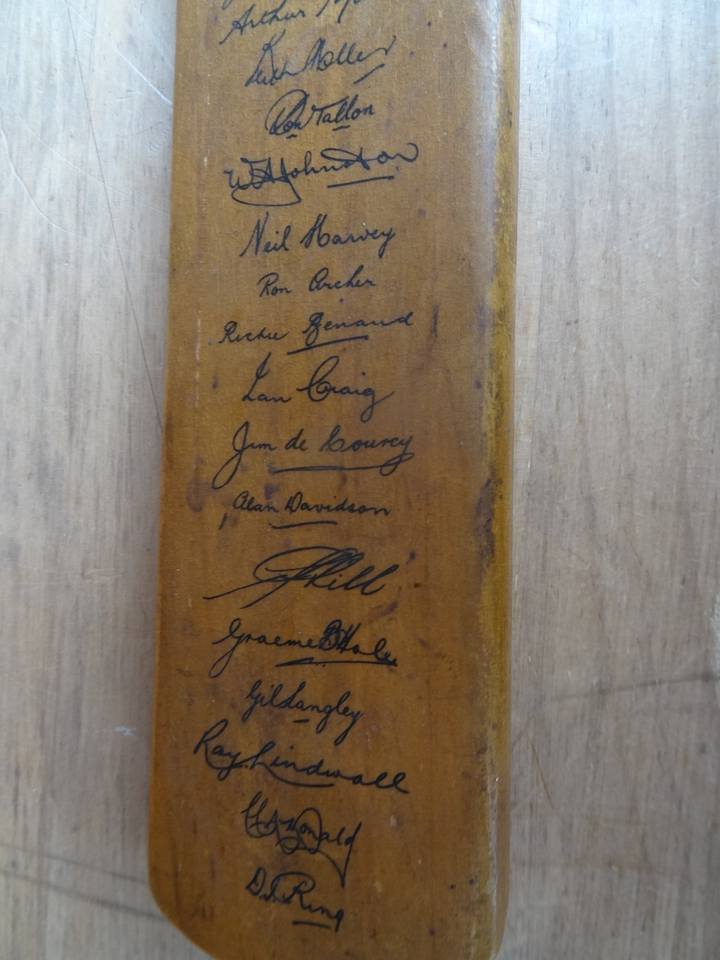 Arthur
Keith Miller
Don Tallon
W A Johnston
Neil Harvey
Ron Archer
Richie Benaud
Ian Craig
Jim de Courcy
Alan Davidson
Hill
Graeme B Hole
Gil Langley
Ray Lindwall
McDonald
D.T. Ring